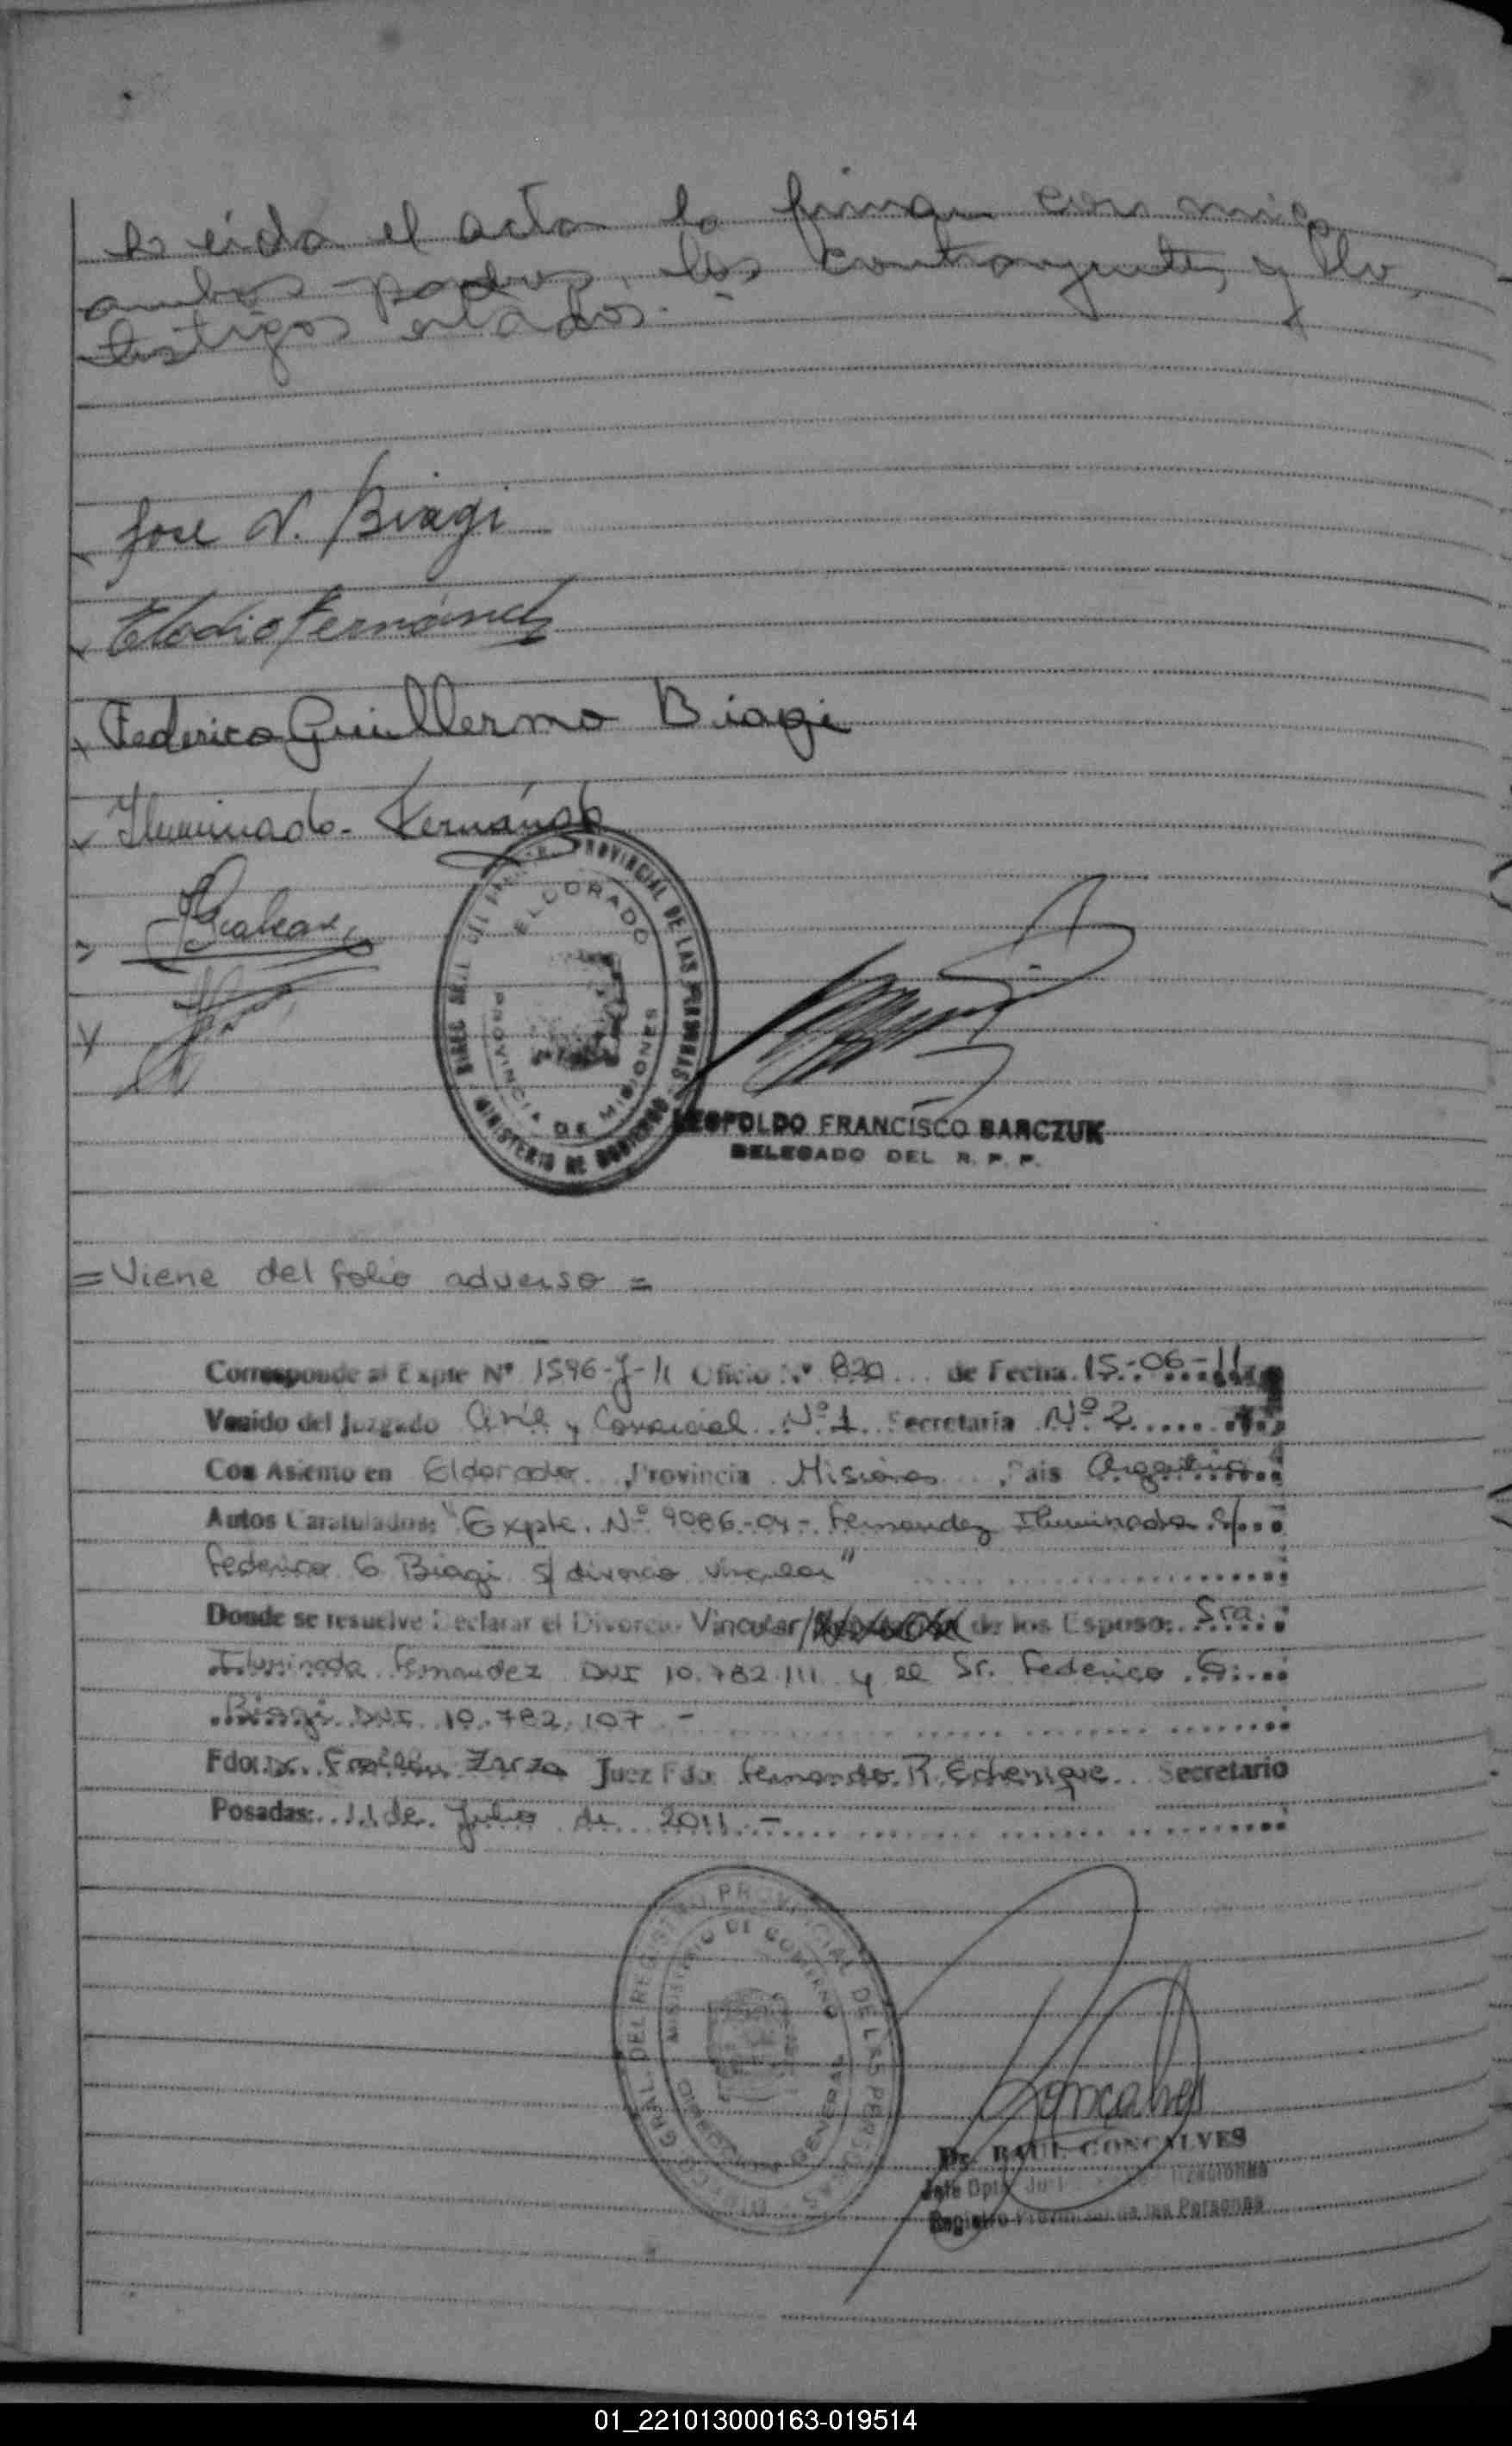 leida el acta la firman con migo
ambos padres, los contrayentes y los
testigos citados.-
Jose N. Biagi
Elodio Fernández
Federico Guillermo Biagi
Iluminada Fernández
PROVINCIAL DE LAS PERSONAS
ELDORADO
PROVINCIA DE MISIONES
MINISTERIO DE GOBIERNO
LEOPOLDO FRANCISCO BARCZUK
DELEGADO DEL R. P. P.
= Viene del folio adverso =
Corresponde al Expte Nº 1596-J-11 Oficio Nº 820 de Fecha 15-06-11
Venido del Juzgado Civil y Comercial Nº 1 Secretaría Nº 2
Con Asiento en Eldorado, Provincia Misiones, Pais Argentina
Autos Caratulados: "Expte. Nº 9086-04- Fernandez Iluminada c/
Federico G Biagi s/ divorcio vincular"
Donde se resuelve Declarar el Divorcio Vincular/ de los Esposos: Sra.
Iluminada Fernandez DNI 10.782.111 y el Sr. Federico G.
Biagi DNI 10.782.107 -
Fdo: Dr. Zarza Juez Fdo Fernando R. Echenique Secretario
Posadas: 11 de Julio de 2011.-
DEL REGISTRO PROVINCIAL DE LAS PERSONAS
MINISTERIO DE GOBIERNO
Goncalves
Dr. RAUL GONCALVES
Jefe Dpto
Registro Provincial de las Personas
01_221013000163-019514